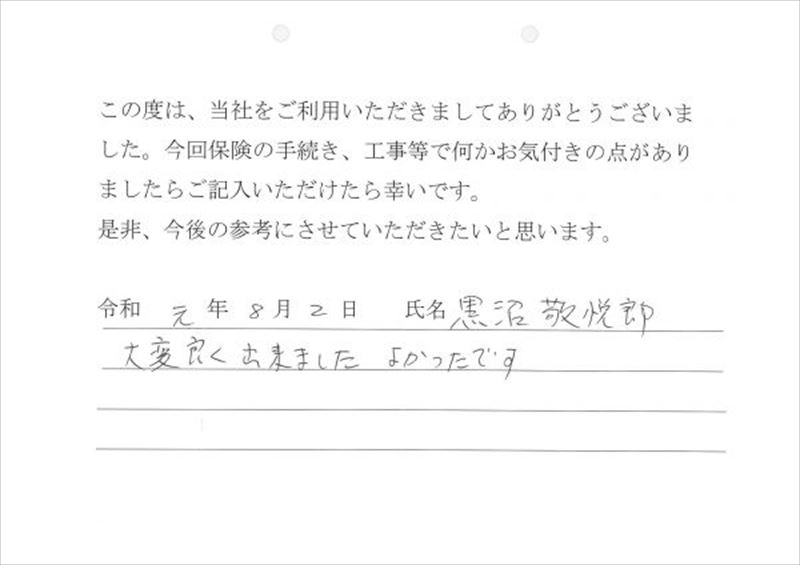 この度は、当社をご利用いただきましてありがとうございま
した。今回保険の手続き、工事等で何かお気付きの点があり
ましたらご記入いただけたら幸いです。
是非、今後の参考にさせていただきたいと思います。
令和 元 年 8 月 2 日 氏名 黒沼 敬悦郎
大変良く出来ました よかったです